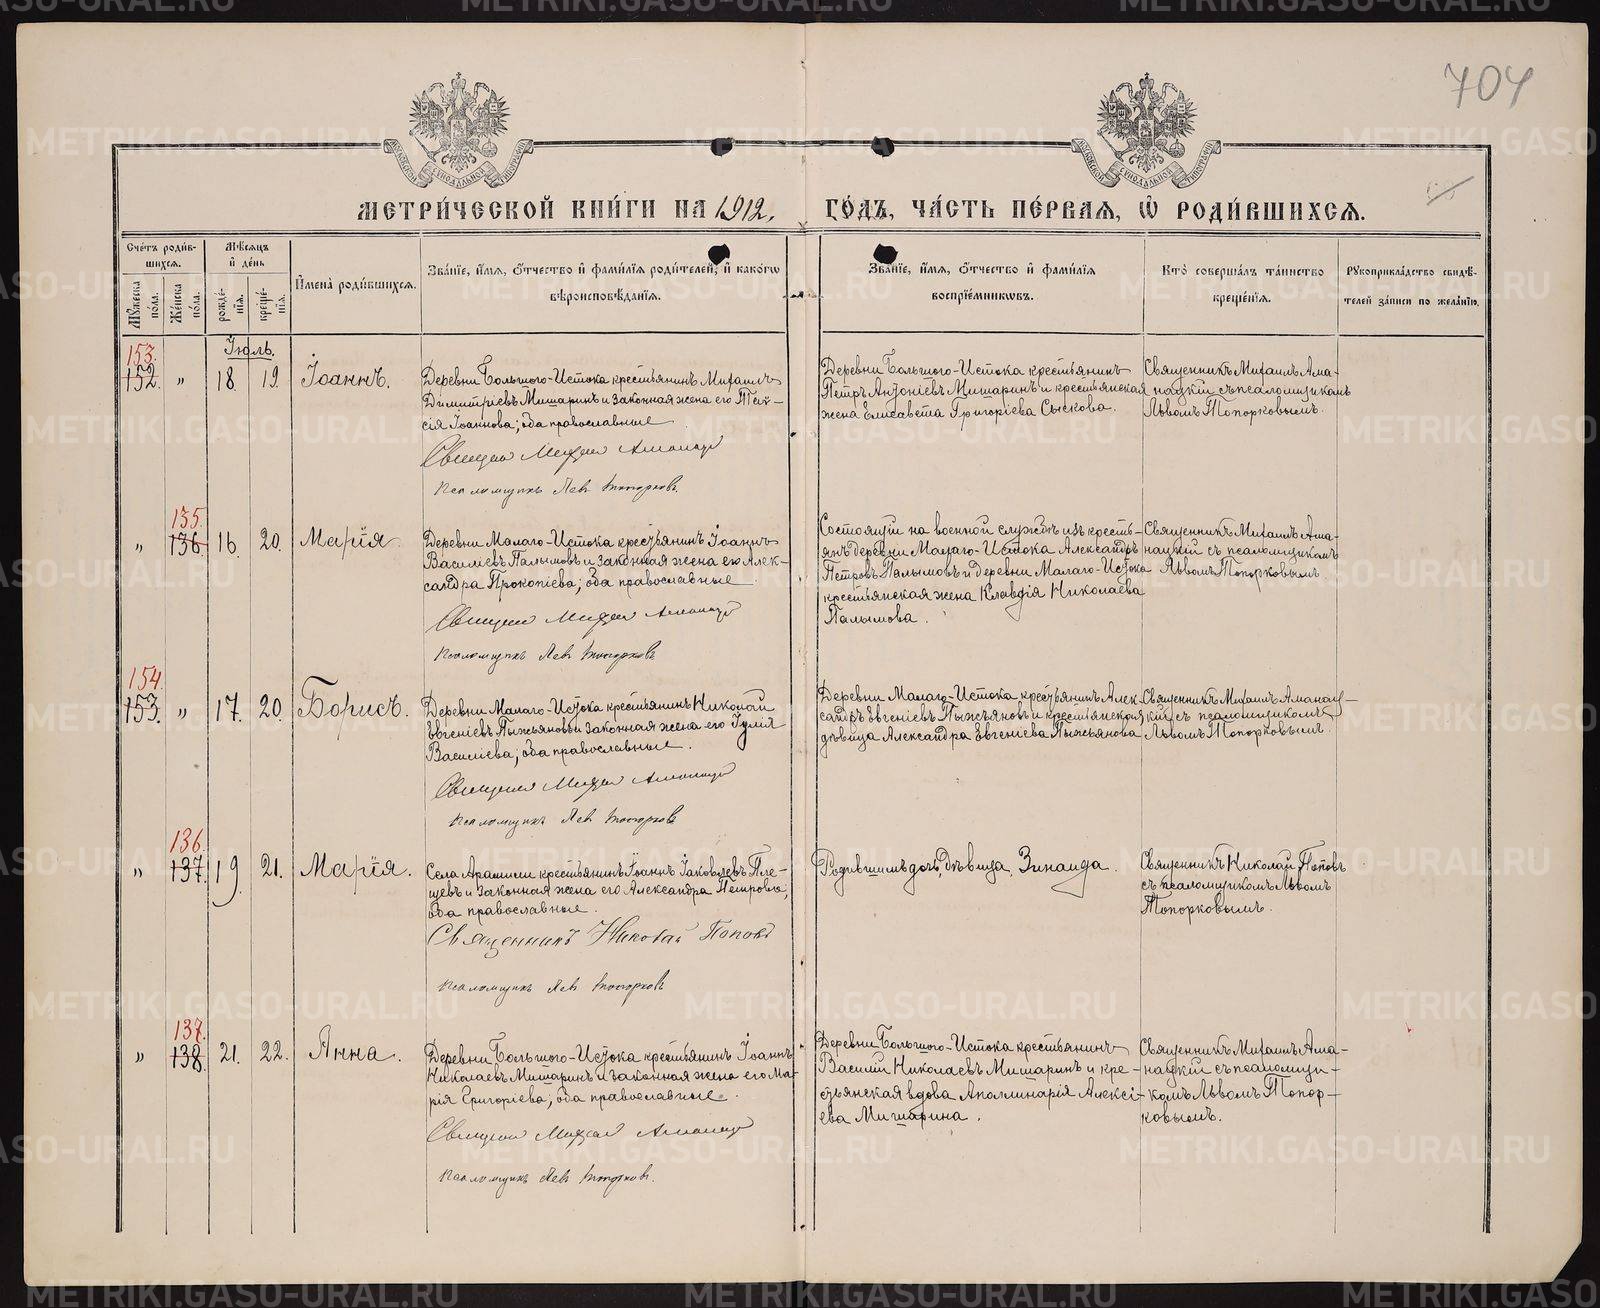 704
МОСКОВСКОЙ СѴНОДАЛЬНОЙ ТИПОГРАФІИ
МОСКОВСКОЙ СѴНОДАЛЬНОЙ ТИПОГРАФІИ
МЕТРИ́ЧЕСКОЙ КНИ́ГИ НА 1912. ГО́ДЪ, ЧА́СТЬ ПЕ́РВАЯ, Ѡ РОДИ́ВШИХСЯ.
Сче́тъ роди́в-
шихся.
Мѣсяцъ
и де́нь
Мꙋжеска
по́ла.
Же́нска
по́ла.
рожде́-
нїя.
креще́-
нїя.
Имена̀ роди́вшихся.
Зва́нїе, и́мя, о́тчество и фами́лїя роди́телей, и како́гѡ
вѣроисповѣ́данїя.
Зва́нїе, и́мя, о́тчество и фами́лїя
воспрїе́мникѡвъ.
Кто̀ соверша́лъ та́инство
креще́нїя.
Рꙋкоприкла́дство свидѣ́-
телей за́писи по жела́нїю.
Іюль.
153.
152. „ 18. 19. Іоаннъ.
Деревни Большого-Истока крестьянинъ Михаилъ
Димитріевъ Мишаринъ и законная жена его Таи-
сія Іоаннова; оба православные
Священ Михаил Аманацк
Псаломщикъ Левъ Топорковъ.
Деревни Большого-Истока крестьянинъ
Петръ Антоніевъ Мишаринъ и крестьянская
жена Елисавета Григоріева Сыскова.
Священникъ Михаилъ Ама-
нацкій съ псаломщикомъ
Львомъ Топорковымъ.
135.
„ 136. 16. 20. Марія.
Деревни Малаго-Истока крестьянинъ Іоаннъ
Василіевъ Палымовъ и законная жена его Алек-
сандра Прокопіева; оба православные
Священ Михаил Аманацк
Псаломщикъ Левъ Топорковъ
Состоящій на военной службѣ изъ кресть-
янъ деревни Малаго-Истока Александръ
Петровъ Палымовъ и деревни Малаго-Истока
крестьянская жена Клавдія Николаева
Палымова.
Священникъ Михаилъ Ама-
нацкій съ псаломщикомъ
Львомъ Топорковымъ
154.
153. „ 17. 20. Борисъ.
Деревни Малаго-Истока крестьянинъ Николай
Евгеніевъ Пыжьяновъ и законная жена его Іулія
Василіева; оба православные.
Священ Михаил Аманацк
Псаломщикъ Левъ Топорковъ
Деревни Малаго-Истока крестьянинъ Алек-
сандръ Евгеніевъ Пыжьяновъ и крестьянская
дѣвица Александра Евгеніева Пыжьянова
Священникъ Михаилъ Аманац-
кій съ псаломщикомъ
Львомъ Топорковымъ.
136.
„ 137. 19. 21. Марія.
Села Арамили крестьянинъ Іоаннъ Іаковлевъ Пле-
щевъ и законная жена его Александра Петрова,
оба православные.
Священникъ Николай Поповъ
Псаломщикъ Левъ Топорковъ
Родившимъ дочь дѣвица Зинаида.
Священникъ Николай Поповъ
съ псаломщикомъ Львомъ
Топорковымъ.
137.
„ 138. 21. 22. Анна.
Деревни Большого-Истока крестьянинъ Іоаннъ
Николаевъ Мишаринъ и законная жена его Ма-
рія Григоріева, оба православные.
Священ Михаил Аманацк
Псаломщикъ Левъ Топорковъ.
Деревни Большого-Истока крестьянинъ
Василій Николаевъ Мишаринъ и кре-
стьянская вдова Аполлинарія Алексі-
ева Мишарина.
Священникъ Михаилъ Ама-
нацкій съ псаломщи-
комъ Львомъ Топор-
ковымъ.
METRIKI.GASO-URAL.RU